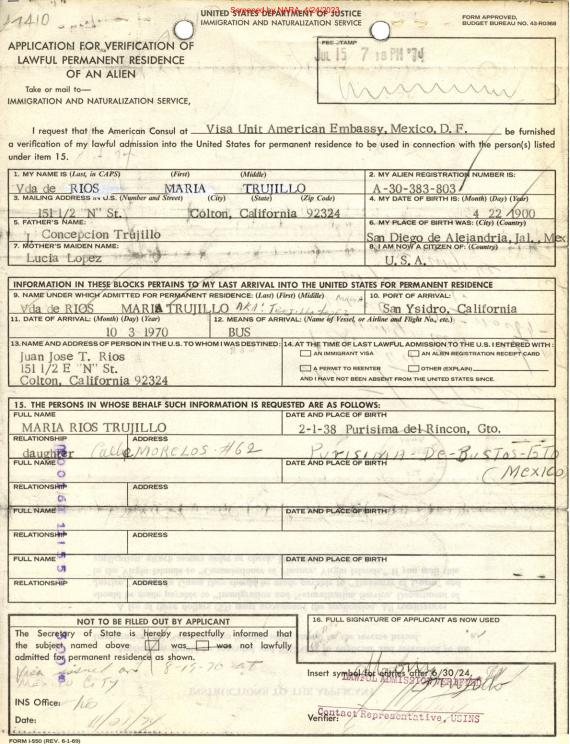 14410
UNITED STATES DEPARTMENT OF JUSTICE
Screened by NARA, 4/24/2023
IMMIGRATION AND NATURALIZATION SERVICE
FORM APPROVED,
BUDGET BUREAU NO. 43-R0368
APPLICATION FOR VERIFICATION OF
LAWFUL PERMANENT RESIDENCE
OF AN ALIEN
FEE STAMP
JUL 15 7 18 PM '74
Take or mail to—
IMMIGRATION AND NATURALIZATION SERVICE,
I request that the American Consul at Visa Unit American Embassy, Mexico, D. F. be furnished
a verification of my lawful admission into the United States for permanent residence to be used in connection with the person(s) listed
under item 15.
1. MY NAME IS (Last, in CAPS) (First) (Middle)
Vda de RIOS MARIA TRUJILLO
2. MY ALIEN REGISTRATION NUMBER IS:
A-30-383-803
3. MAILING ADDRESS IN U.S. (Number and Street) (City) (State) (Zip Code)
151 1/2 "N" St. Colton, California 92324
4. MY DATE OF BIRTH IS: (Month) (Day) (Year)
4 22 1900
5. FATHER'S NAME:
Concepcion Trujillo
6. MY PLACE OF BIRTH WAS: (City) (Country)
San Diego de Alejandria, Jal., Mex
7. MOTHER'S MAIDEN NAME:
Lucia Lopez
8. I AM NOW A CITIZEN OF: (Country)
U. S. A.
INFORMATION IN THESE BLOCKS PERTAINS TO MY LAST ARRIVAL INTO THE UNITED STATES FOR PERMANENT RESIDENCE
9. NAME UNDER WHICH ADMITTED FOR PERMANENT RESIDENCE: (Last) (First) (Middle)
Vda de RIOS MARIA TRUJILLO AKA:
10. PORT OF ARRIVAL:
San Ysidro, California
11. DATE OF ARRIVAL: (Month) (Day) (Year)
10 3 1970
12. MEANS OF ARRIVAL: (Name of Vessel, or Airline and Flight No., etc.)
BUS
13. NAME AND ADDRESS OF PERSON IN THE U.S. TO WHOM I WAS DESTINED:
Juan Jose T. Rios
151 1/2 E "N" St.
Colton, California 92324
14. AT THE TIME OF LAST LAWFUL ADMISSION TO THE U.S. I ENTERED WITH:
AN IMMIGRANT VISA AN ALIEN REGISTRATION RECEIPT CARD
A PERMIT TO REENTER OTHER (EXPLAIN)
AND I HAVE NOT BEEN ABSENT FROM THE UNITED STATES SINCE.
15. THE PERSONS IN WHOSE BEHALF SUCH INFORMATION IS REQUESTED ARE AS FOLLOWS:
FULL NAME DATE AND PLACE OF BIRTH
MARIA RIOS TRUJILLO 2-1-38 Purisima del Rincon, Gto.
RELATIONSHIP ADDRESS
daughter Calle MORELOS #62 PURISIMA-DE-BUSTOS-GTO
(MEXICO)
FULL NAME DATE AND PLACE OF BIRTH
RELATIONSHIP ADDRESS
FULL NAME DATE AND PLACE OF BIRTH
RELATIONSHIP ADDRESS
FULL NAME DATE AND PLACE OF BIRTH
RELATIONSHIP ADDRESS
NOT TO BE FILLED OUT BY APPLICANT
The Secretary of State is hereby respectfully informed that
the subject named above was was not lawfully
admitted for permanent residence as shown.
Visa issued on 8-15-70 at
Mexico City
INS Office:
Date:
16. FULL SIGNATURE OF APPLICANT AS NOW USED
Insert symbol for entries after 6/30/24,
LAWFUL ADMISSION VERIFIED
Contact Representative, USINS
Verifier:
FORM I-550 (REV. 6-1-69)